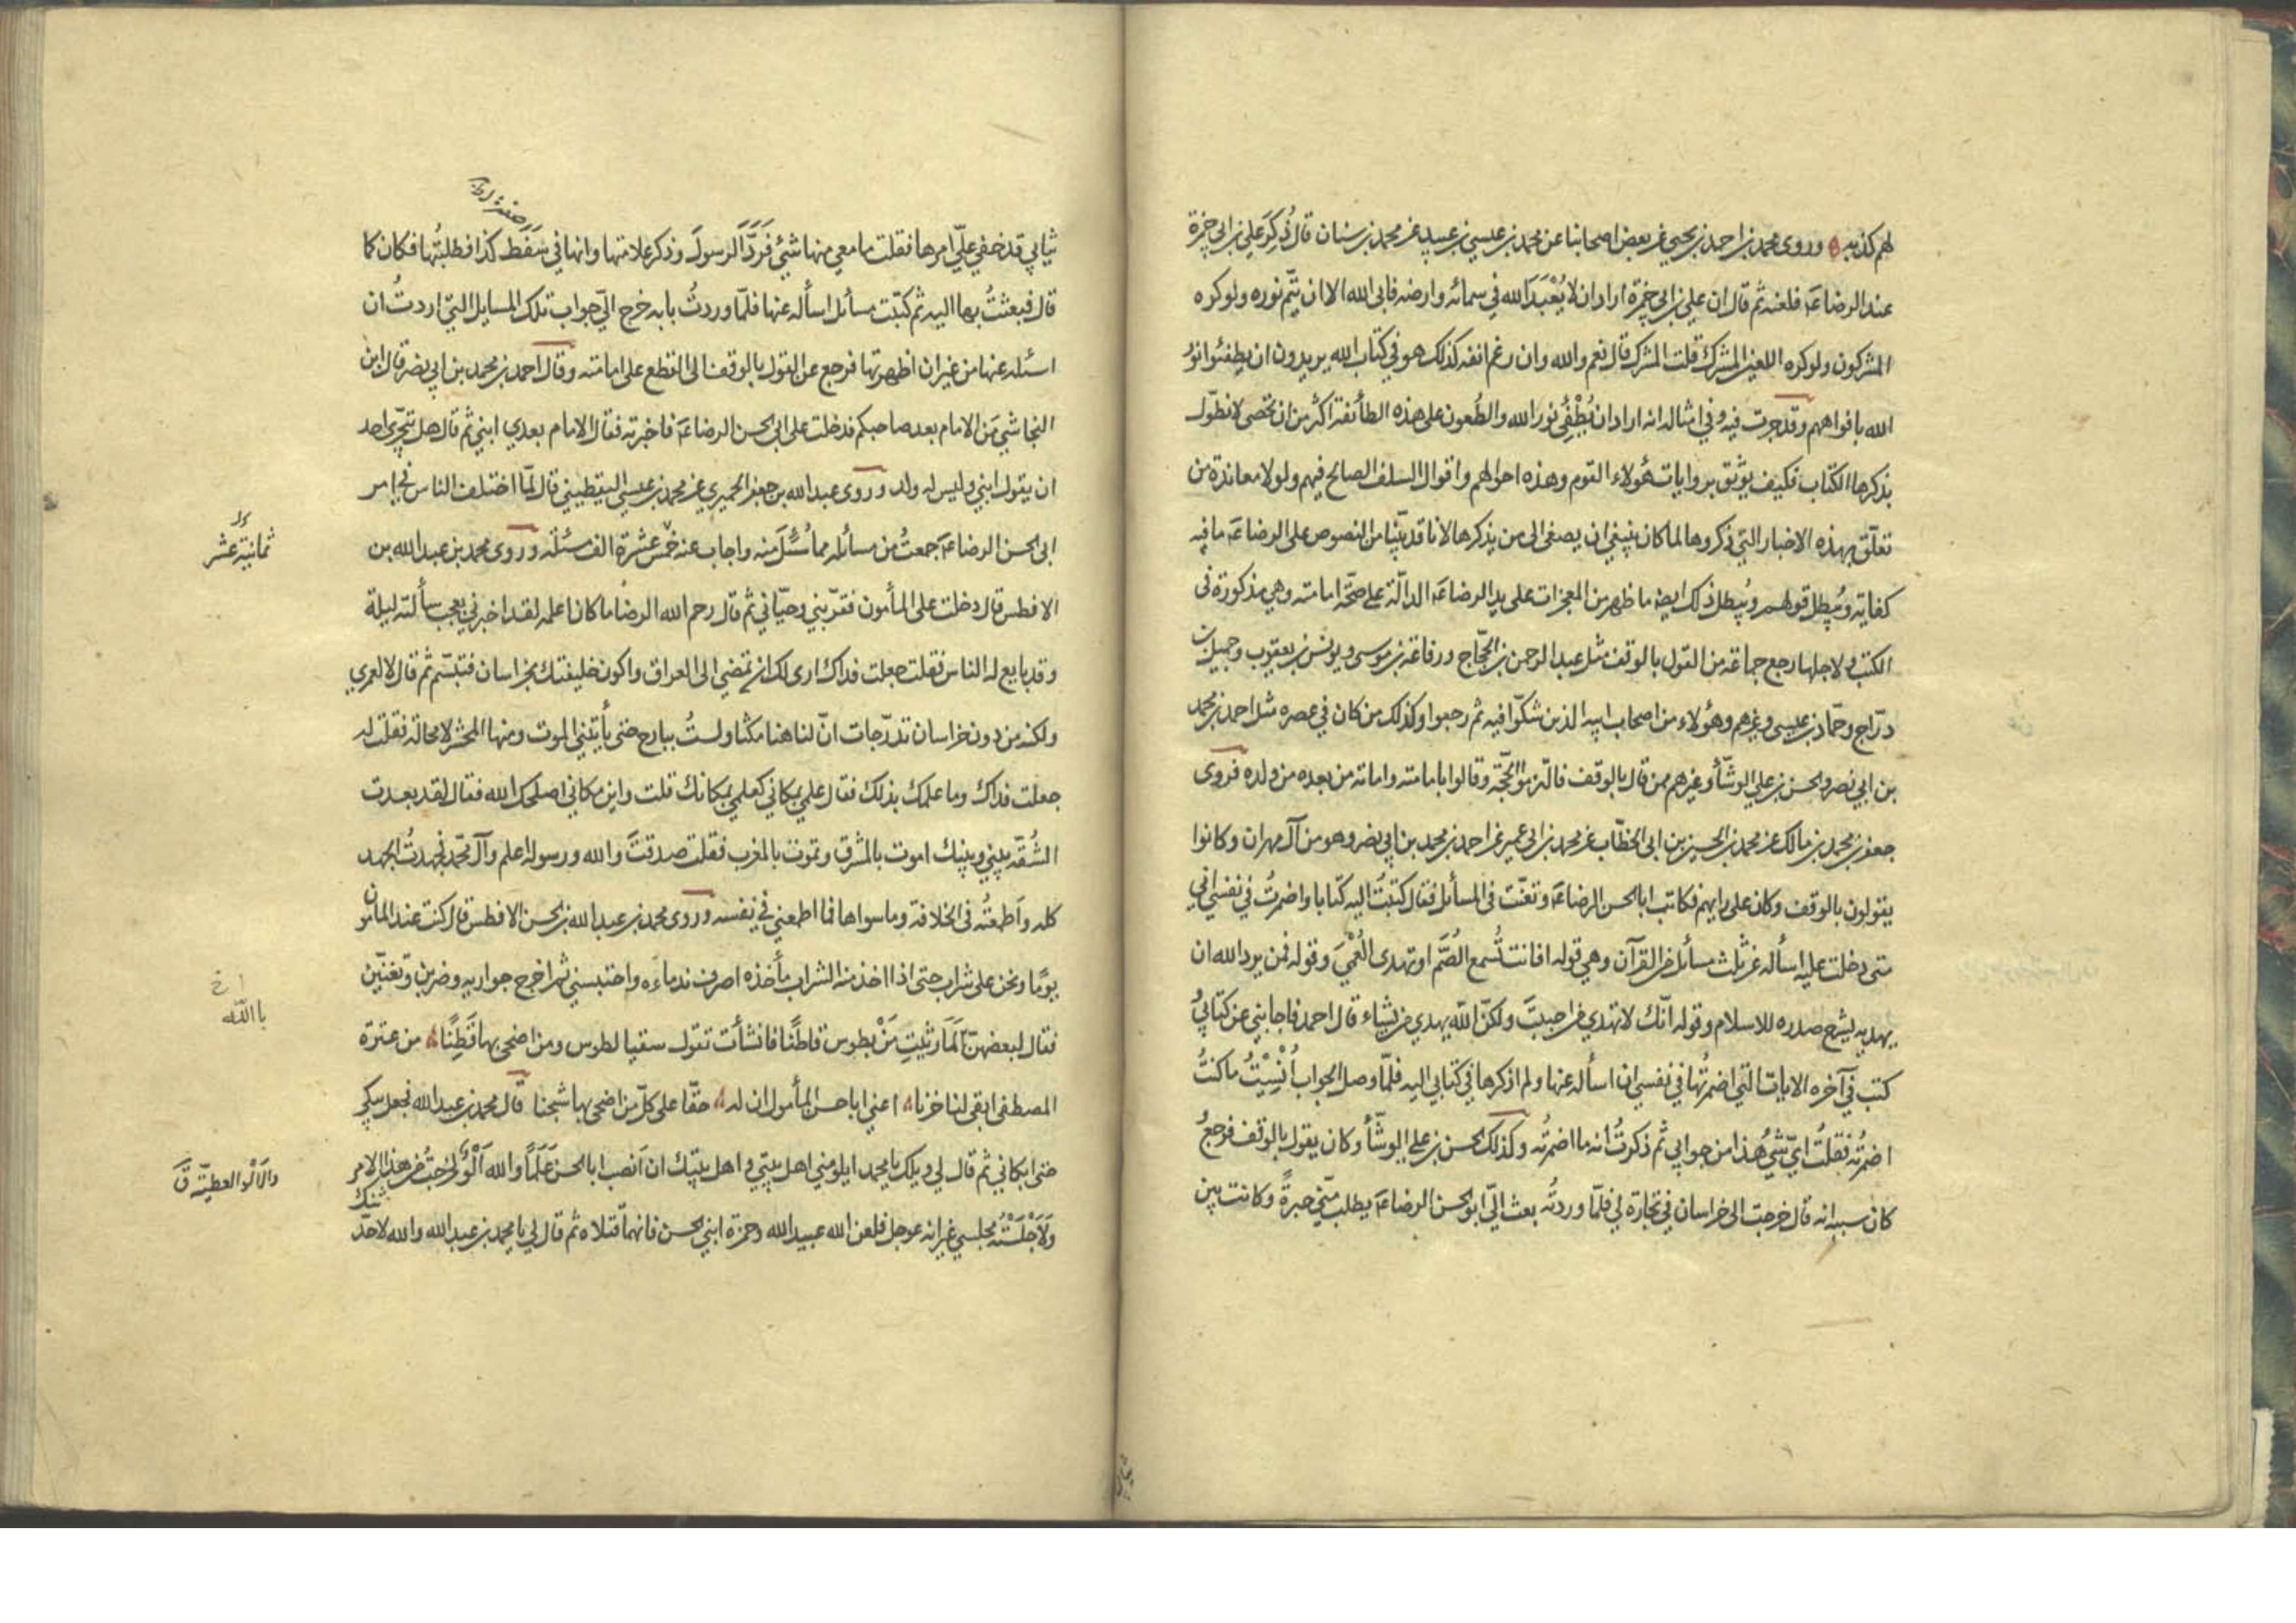 لهم كذبه وروى محمد بن احمد بن يحيى عن بعض اصحابنا عن محمد بن عيسى بن عبيد عن محمد بن سنان قال ذُكِرَ علي بن ابي حمزة
عند الرضا عَ فلعنه ثم قال ان علي بن ابي حمزة اراد ان لا يُعْبَدَ الله في سمائه وارضه فابى الله الا ان يتمّ نوره ولو كره
المشركون ولو كره اللعين المشرك قلت المشرك قال نعم والله وان رغم انفه كذلك هو في كتاب الله يريدون ان يطفئوا نورَ
الله بافواههم وقد جرت فيه وفي امثاله انه اراد ان يُطْفِئ نور الله والطُعون على هذه الطائفة اكثر من ان تحصى لا نطوّل
بذكرها الكتاب فكيف يوثق بروايات هؤلاء القوم وهذه احوالهم واقوال السلف الصالح فيهم ولولا معاندة من
تعلّق بهذه الاخبار التي ذكروها لما كان ينبغي ان يصغى الى من يذكرها لانا قد بيّنا من النصوص على الرضا عَ ما فيه
كفاية ويُبطل قولهم ويُبطل ذلك ايضا ما ظهر من المعجزات على يد الرضا عَ الدالّة على صحّة امامته وهي مذكورة في
الكتب ولاجلها رجع جماعة من القول بالوقف مثل عبد الرحمن بن الحجّاج ورفاعة بن موسى ويونس بن يعقوب وجميل بن
درّاج وحمّاد بن عيسى وغيرهم وهؤلاء من اصحاب ابيه الذين شكّوا فيه ثم رجعوا وكذلك من كان في عصره مثل احمد بن محمد
بن ابي نصر والحسن بن علي الوشّاء وغيرهم ممن قال بالوقف فالتزموا الحجّة وقالوا بامامته وامامة من بعده من ولده فروى
جعفر بن محمد بن مالك عن محمد بن الحسين بن ابي الخطّاب عن محمد بن ابي عمير عن احمد بن محمد بن ابي نصر وهو من آل مهران وكانوا
يقولون بالوقف وكان على رايهم فكاتب ابا الحسن الرضا عَ وتعنّت في المسائل فقال كتبتُ اليه كتابا واضمرتُ في نفسي اني
متى دخلت عليه اسأله عن ثلث مسائل من القرآن وهي قوله افانت تُسمع الصُمَّ او تهدى العُمْيَ وقوله فمن يرد الله ان
يهديه يشرح صدره للاسلام وقوله انّك لا تهدي من احببتَ ولكنّ الله يهدي من يشاء قال احمد فاجابني عن كتابي
كتب في آخره الايات التي اضمرتُها في نفسي ان اسأله عنها ولم اذكرها في كتابي اليه فلمّا وصل الجواب اُنْسِيْتُ ما كنتُ
اضمرتُه فقلتُ ايّ شيءٍ هذا من جوابي ثم ذكرتُ انه ما اضمرتُه وكذلك الحسن بن علي الوشّاء وكان يقول بالوقف فرجعَ
كان سببه انه قال خرجت الى خراسان في تجارة لي فلمّا وردتُه بعث اليّ ابو الحسن الرضا عَ يطلب منّي حبرةً وكانت بين
ثيابي قد خفي عليّ امرها فقلت ما معي منها شيئ فَرَدَّ الرسولَ وذكر علامتها وانها في سَفَط كذا فطلبتُها فكان كما
قال فبعثتُ بها اليه ثم كتبت مسائل اسأله عنها فلمّا وردتُ بابه خرج اليّ جواب تلك المسايل التي اردتُ ان
اسئله عنها من غير ان اظهرتها فرجع عن القول بالوقف الى القطع على امامته وقال احمد بن محمد بن ابي نصر قال ابن
النجاشي مَن الامام بعد صاحبكم فدخلت على ابي الحسن الرضا عَ فاخبرته فقال الامام بعدي ابني ثم قال هل يتجرّى احد
ان يقول ابني وليس له ولد وروى عبد الله بن جعفر الحميري عن محمد بن عيسى اليقطيني قال لمّا اختلف الناس في امر
ابي الحسن الرضا عَ جمعتُ من مسائله مما سُئل منه واجاب عنه خمس عشرة الف مسئلة وروى محمد بن عبد الله بن
ثمانية عشر
الافطس قال دخلت على المأمون فقرّبني وحيّاني ثم قال رحم الله الرضا ما كان اعلمه لقد اخبرني بعجب سألته ليلة
وقد بايع له الناس فقلت جعلت فداك ارى لك ان تمضي الى العراق واكون خليفتك بخراسان فتبسّم ثم قال لا لعمري
ولكنه من دون خراسان تدرّجات انّ لنا هنا مكثا ولستُ ببارح حتى يأتيني الموت ومنها المحشر لا محالة فقلت له
جعلت فداك وما علمك بذلك فقال علمي بمكاني كعلمي بمكانك قلت واين مكاني اصلحك الله فقال لقد بعدت
الشُقّة بيني وبينك اموت بالمشرق وتموت بالمغرب فقلت صدقتَ والله ورسوله اعلم وآل محمّد فجهدتُ الجهد
كله واَطعتُه في الخلافة وما سواها فما اطعمني في نفسه وروى محمد بن عبد الله بن الحسن الافطس قال كنت عند المأمون
يومًا ونحن على شراب حتى اذا اخذ منه الشراب مأخذه اصرف ندماءه واحتبسني ثم اخرج جواريه وضربن وتغنّين
فقال لبعضهنّ لَمَا رثيتِ مَنْ بطوس قاطنًا فانشأت تقول سقيا لطوس ومن اضحى بها قَطِنًا من عترة
باالله خ
المصطفى ابقى لنا حزنا اعني ابا حسن المأمول ان له حقّا على كلّ من اضحى بها شجنا قال محمد بن عبد الله فجعل يبكي
حتى ابكاني ثم قال لي ويلك يا محمد ايلومني اهل بيتي واهل بيتك ان اَنصب ابا الحسن عَلَمًا والله اَلْوُ لخرجتُ من هذا الامر
والاَلْو العطيّة قَ
وَلَاَجْلَسْتُه مجلسي غير انه عوجل فلعن الله عبيد الله وحمزة ابني الحسن فانهما قتلاه ثم قال لي يا محمد بن عبد الله والله لاحدّثنك